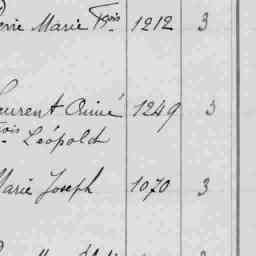 Marie Fçois 1212 3
Laurent Aimé 1249 3
Léopold
Marie Joseph 1070 3